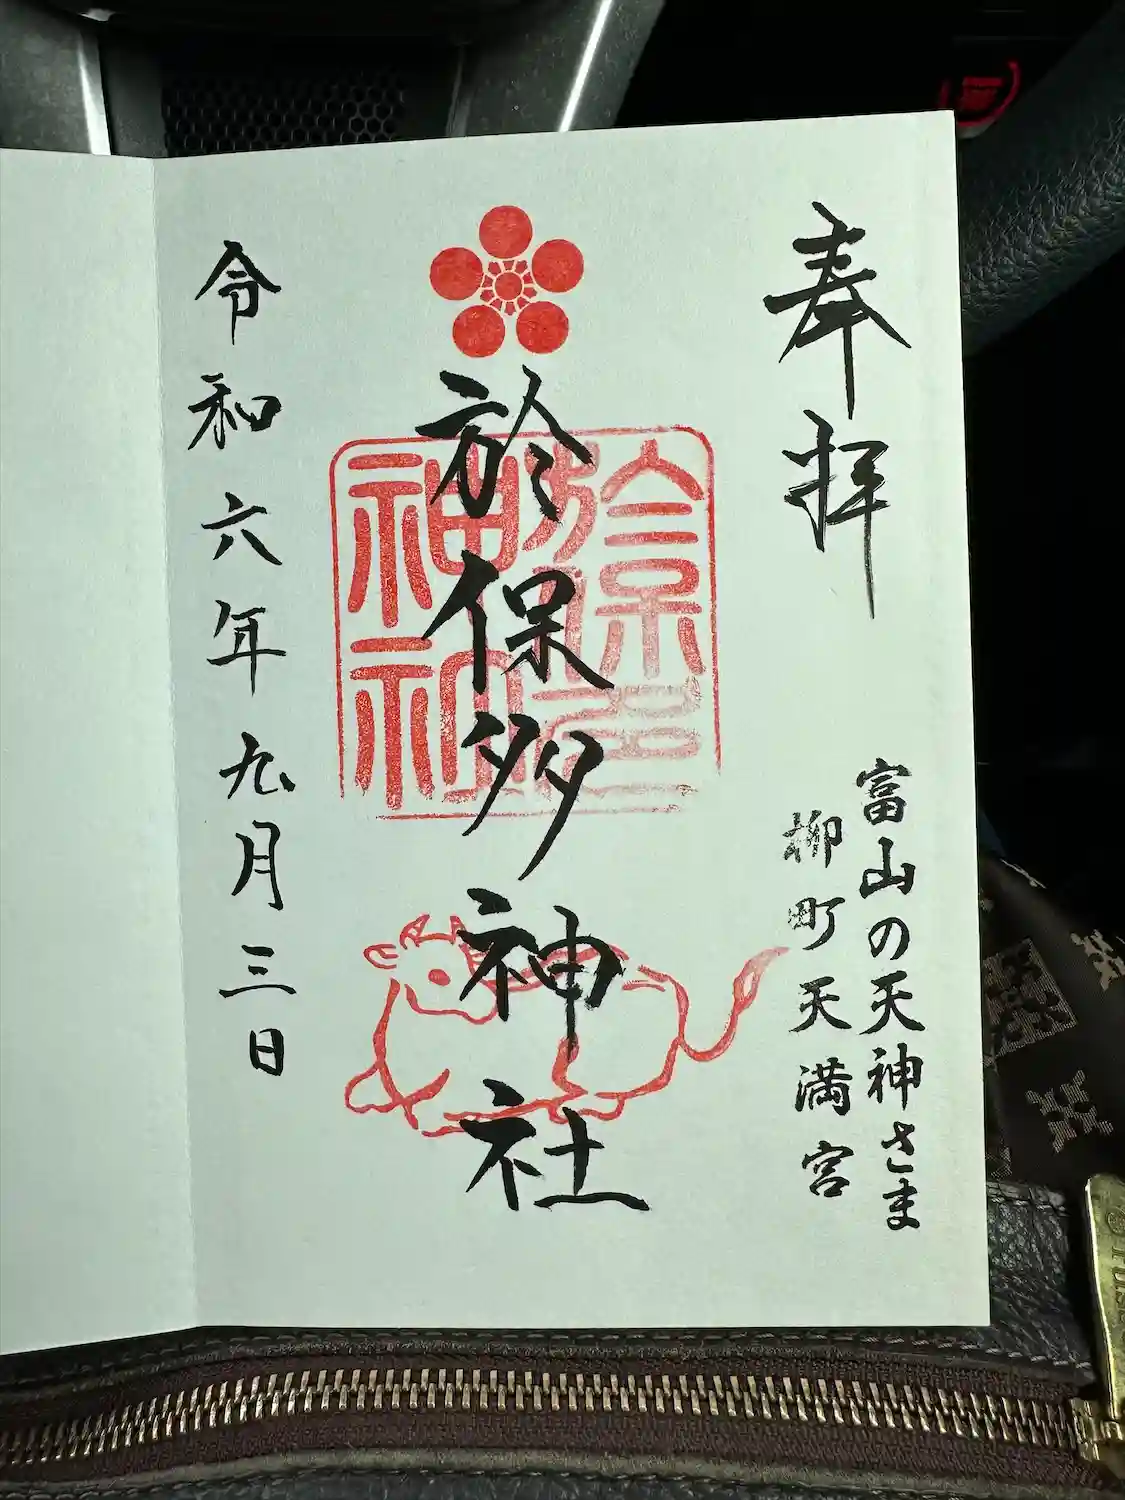 奉拝
富山の天神さま
柳町天満宮
於保多神社
令和六年九月三日